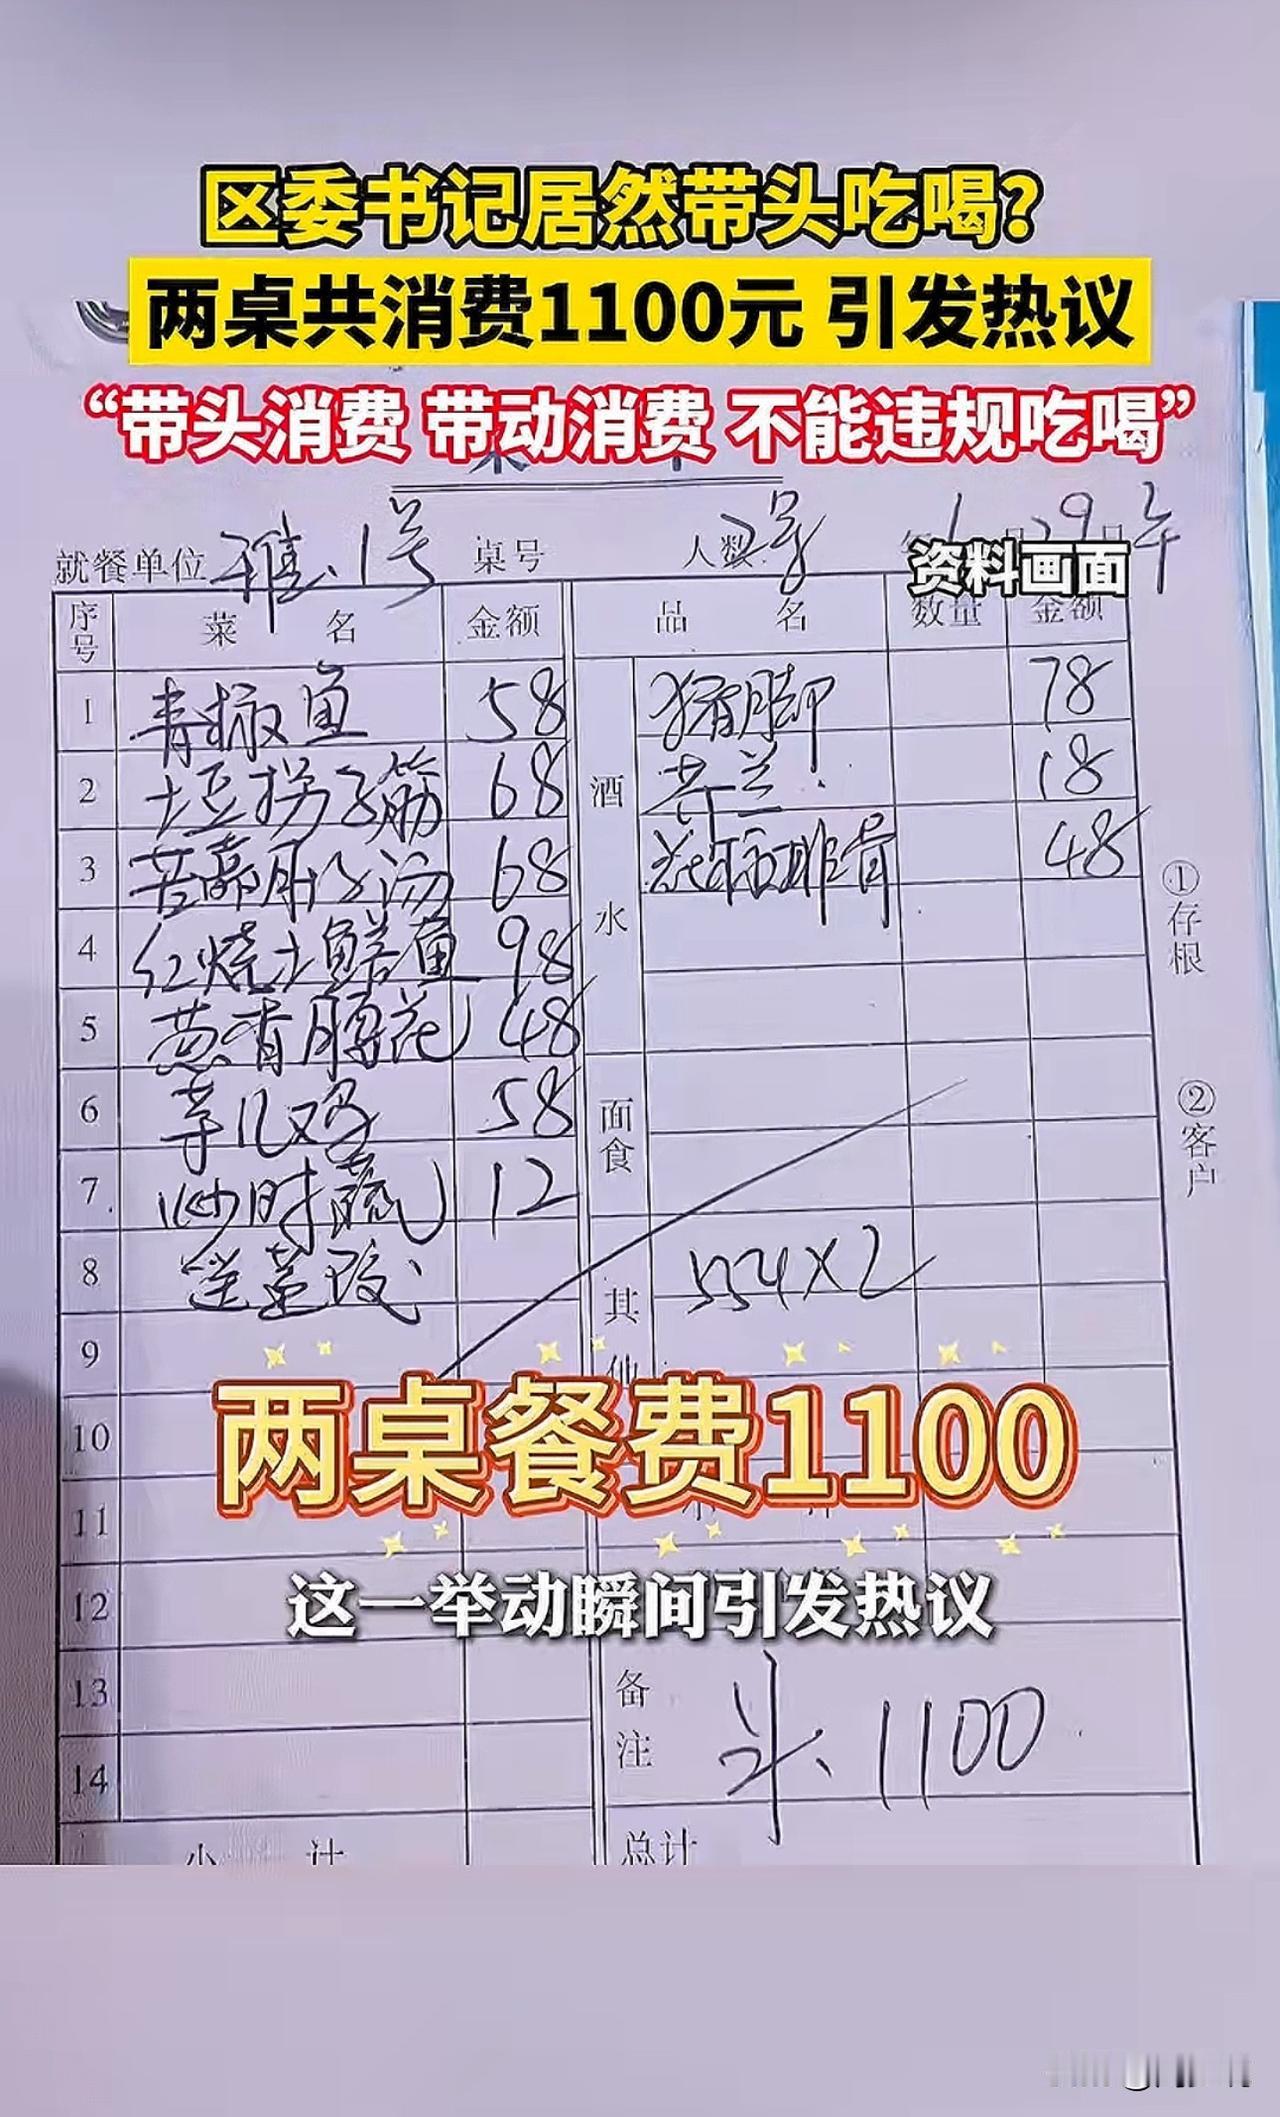 区委书记居然带头吃喝?
两桌共消费1100元 引发热议
“带头消费 带动消费 不能违规吃喝”
就餐单位 雅.1号 桌号 人数 2号 6月29日 午
资料画面
序号 菜名 金额 品名 数量 金额
1 青椒鱼 58 酒水 猪脚 78
2 土豆拐子筋 68 芥兰 18
3 苦藠肚子汤 68 排骨 48
4 红烧土鳝鱼 98
5 葱香腰花 48
6 芋儿鸡 58 面食
7 炒时蔬 12
8 其他 554×2
9
10
两桌餐费1100
11
12
这一举动瞬间引发热议
13 备注 1100
14
小计 总计
①存根
②客户